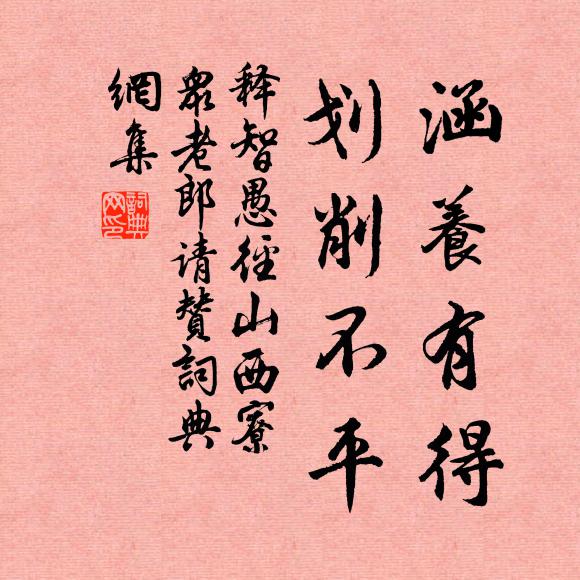 涵養有得
划削不平
释智愚徑山西寮
眾老郎请贊詞典
網集
詞典
网印